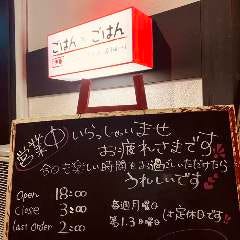 ごはん ごはん
営業中
いらっしゃいませ
お疲れさまです
今日も楽しい時間をお過ごしいただけたら
うれしいです
Open 18:00
Close 3:00
Last Order 2:00
毎週月曜日
第1.3日曜日
は定休日です